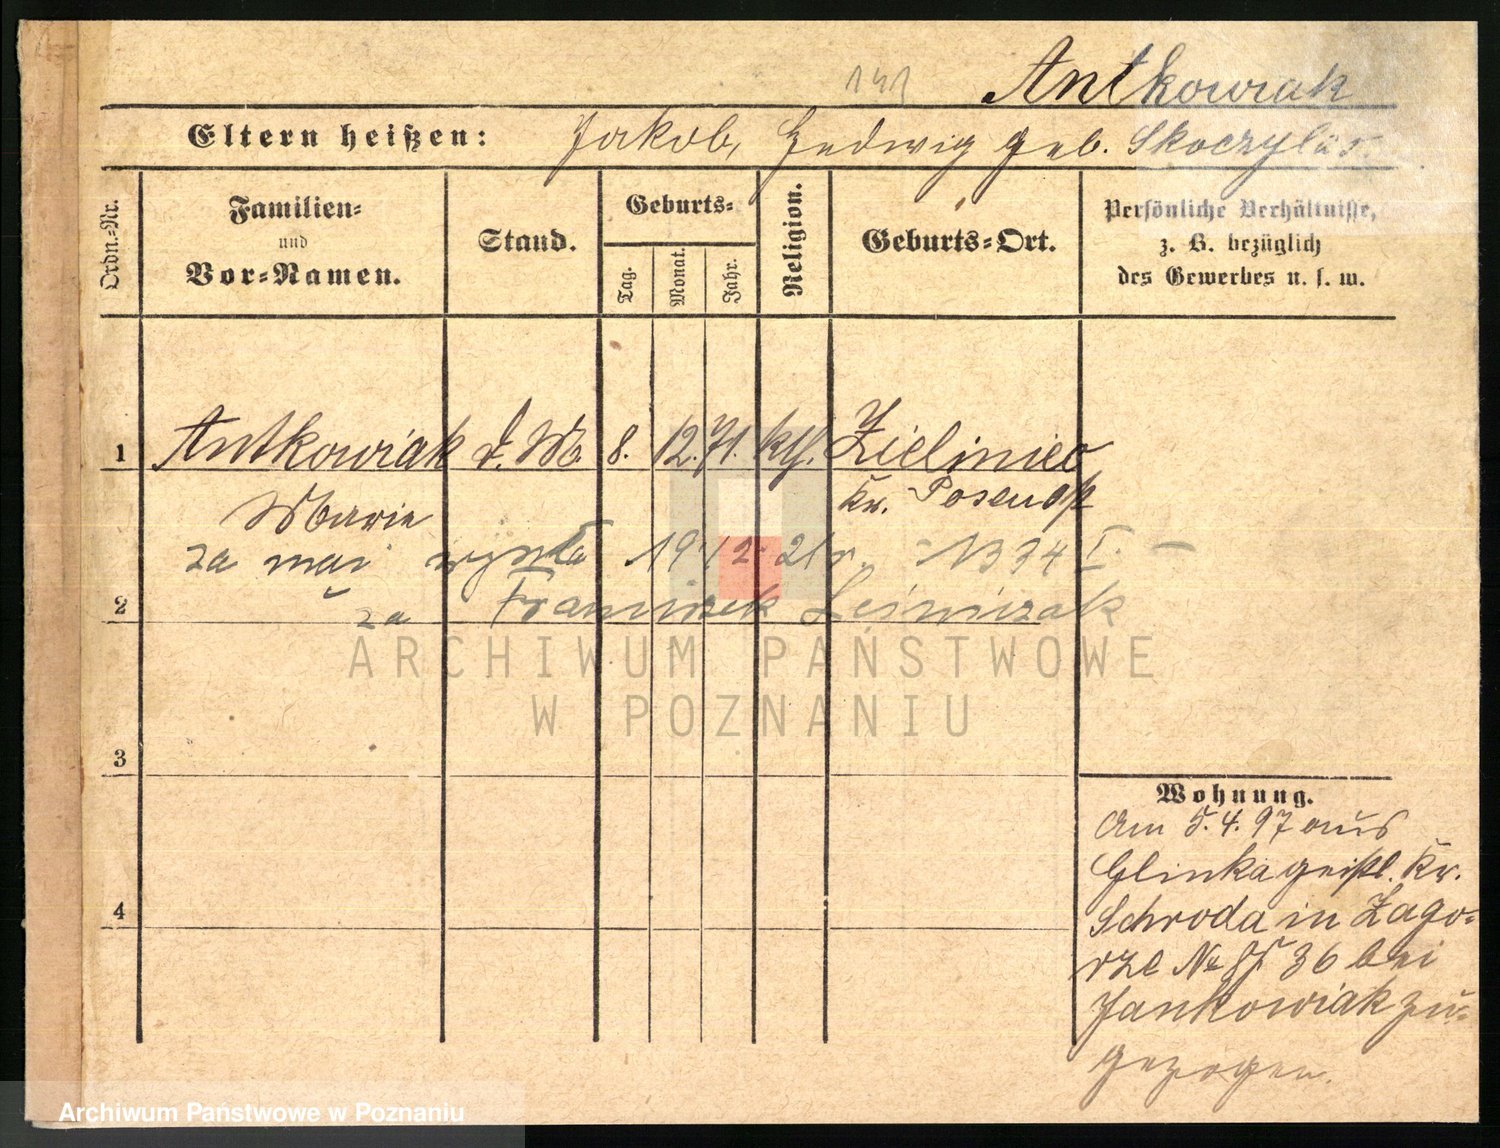 141 Antkowiak
Eltern heißen: Jakob, Hedwig geb. Skoczylas.
Ordn.-Nr.
Familien-
und
Vor-Namen.
Stand.
Geburts-
Tag.
Monat.
Jahr.
Religion.
Geburts-Ort.
Persönliche Verhältnisse,
z. B. bezüglich
des Gewerbes u. s. w.
1 Antkowiak d. M. 8. 12. 71. kth. Zieliniec
Marie Kr. Posen Ost
za mąż wyszła 1912 21 r.
2 za Franciszek Leśniczak
ARCHIWUM PAŃSTWOWE
W POZNANIU
3
4
Wohnung.
Am 5.4.97 aus
Glinka geistl. Kr.
Schroda in Zago-
rze No 36 bei
Jankowiak zu-
gezogen.
Archiwum Państwowe w Poznaniu